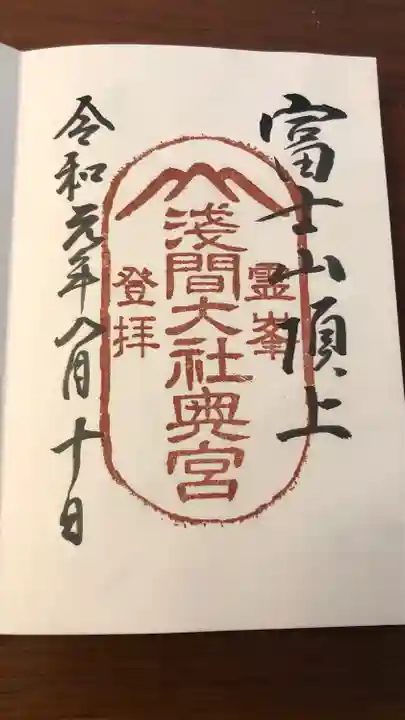 富士山頂上
霊峯
淺間大社奥宮
登拝
令和元年八月十日